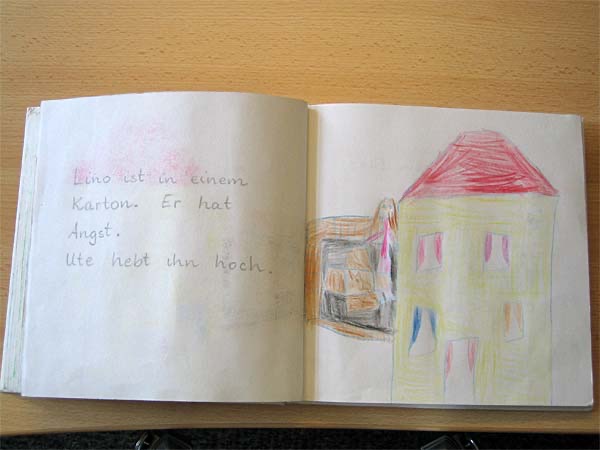 Lino ist in einem
Karton. Er hat
Angst.
Ute hebt ihn hoch.